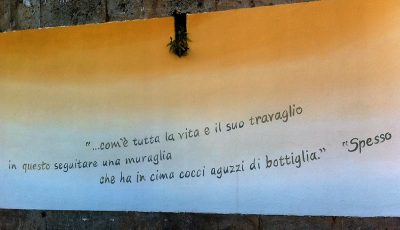 "...com'è tutta la vita e il suo travaglio
in questo seguitare una muraglia
che ha in cima cocci aguzzi di bottiglia."
"Spesso